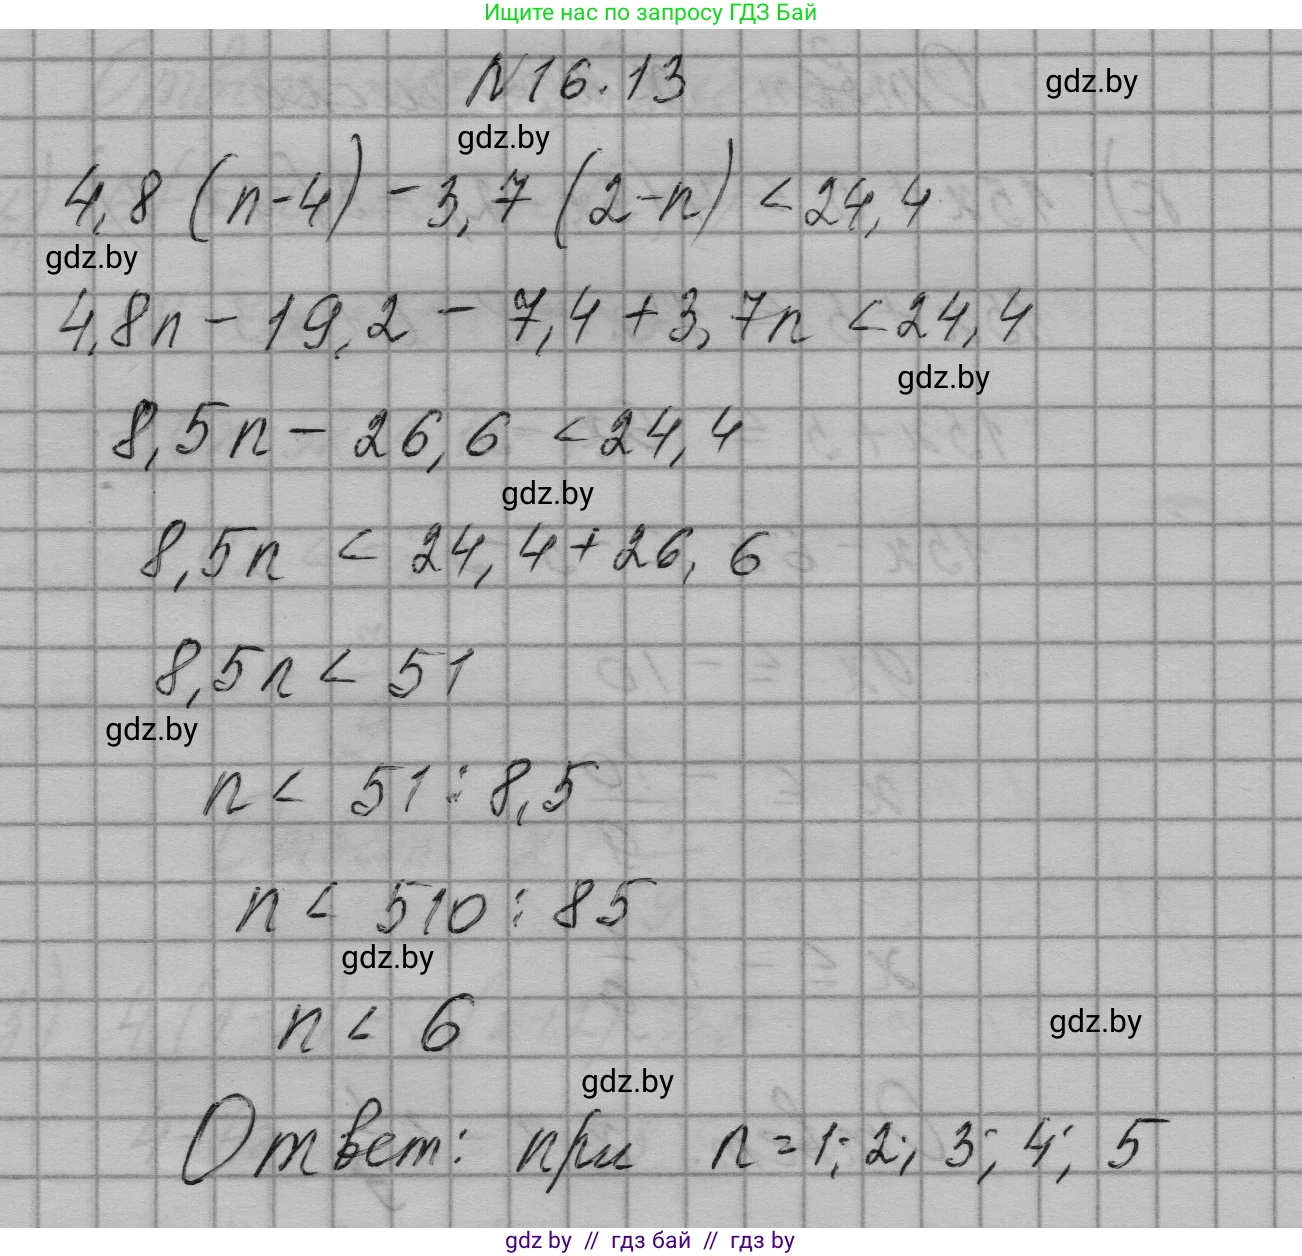 Ищите нас по запросу ГДЗ Бай
N16.13
gdz.by
gdz.by
4,8 (n-4) - 3,7 (2-n) < 24,4
gdz.by
4,8n - 19,2 - 7,4 + 3,7n < 24,4
gdz.by
8,5n - 26,6 < 24,4
gdz.by
8,5n < 24,4 + 26,6
8,5n < 51
gdz.by
n < 51 : 8,5
n < 510 : 85
gdz.by
n < 6
gdz.by
gdz.by
Ответ: при n = 1; 2; 3; 4; 5
gdz by // гдз бай // гдз by